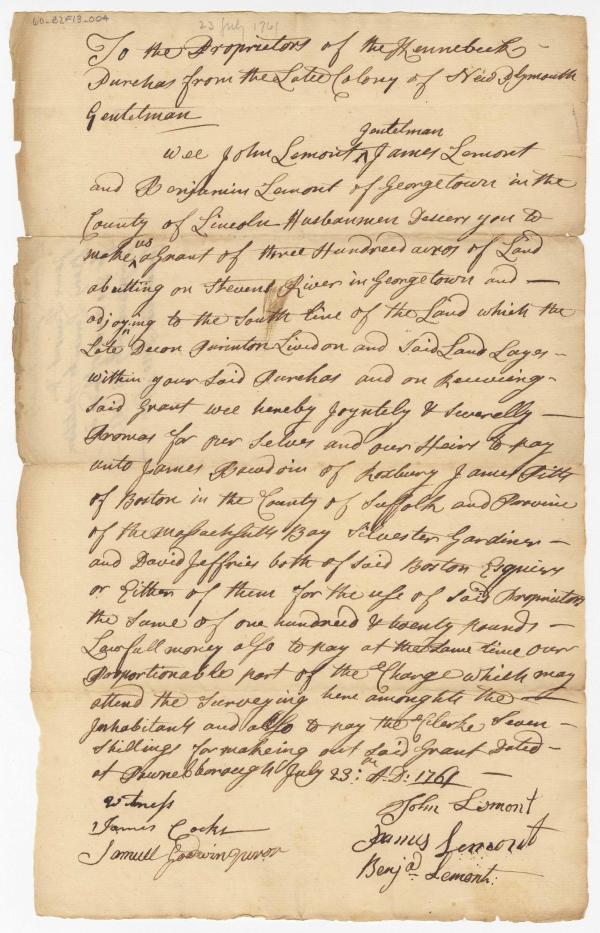 60-B2F13-004
23 July 1761
To the Proprietors of the Kennebeck
Purchas from the Late Colony of New Plymouth
Gentelman
Gentelman
wee John Lemont ^ James Lemont
and Benjamin Lemont of Georgetown in the
County of Lincoln Husbanmen Desers you to
make ^us a Grant of three Hundred acros of Land
abutting on Stevens River in Georgetown and
adjoyning to the South line of the Land which the
Late Decon Purinton Lived on and Said Land Layes
within your Said Purchas and on Receiving
Said Grant wee hereby Joyntely & Severelly
Promas for our Selves and our Heirs to pay
unto James Bowdoin of Roxbury James Pitts
of Boston in the County of Suffolk and Provine
of the Massachusetts Bay Silvester Gardiner
and David Jeffries both of Said Boston Esquiers
or Either of them for the use of Said Propriators
the Same of one hundred & twenty pounds
Lawfull money also to pay at the same time our
Proportionable part of the Charge which may
attend the Surveying here amonghts the
Inhabitants and also to pay the Clarke Seven
Shillings for makeing out said Grant Dated
at Pownelborough July 23: A:D: 1761
witness
James Cocks
Samuell Goodwin
John Lemont
James Lemont
Benja Lemont